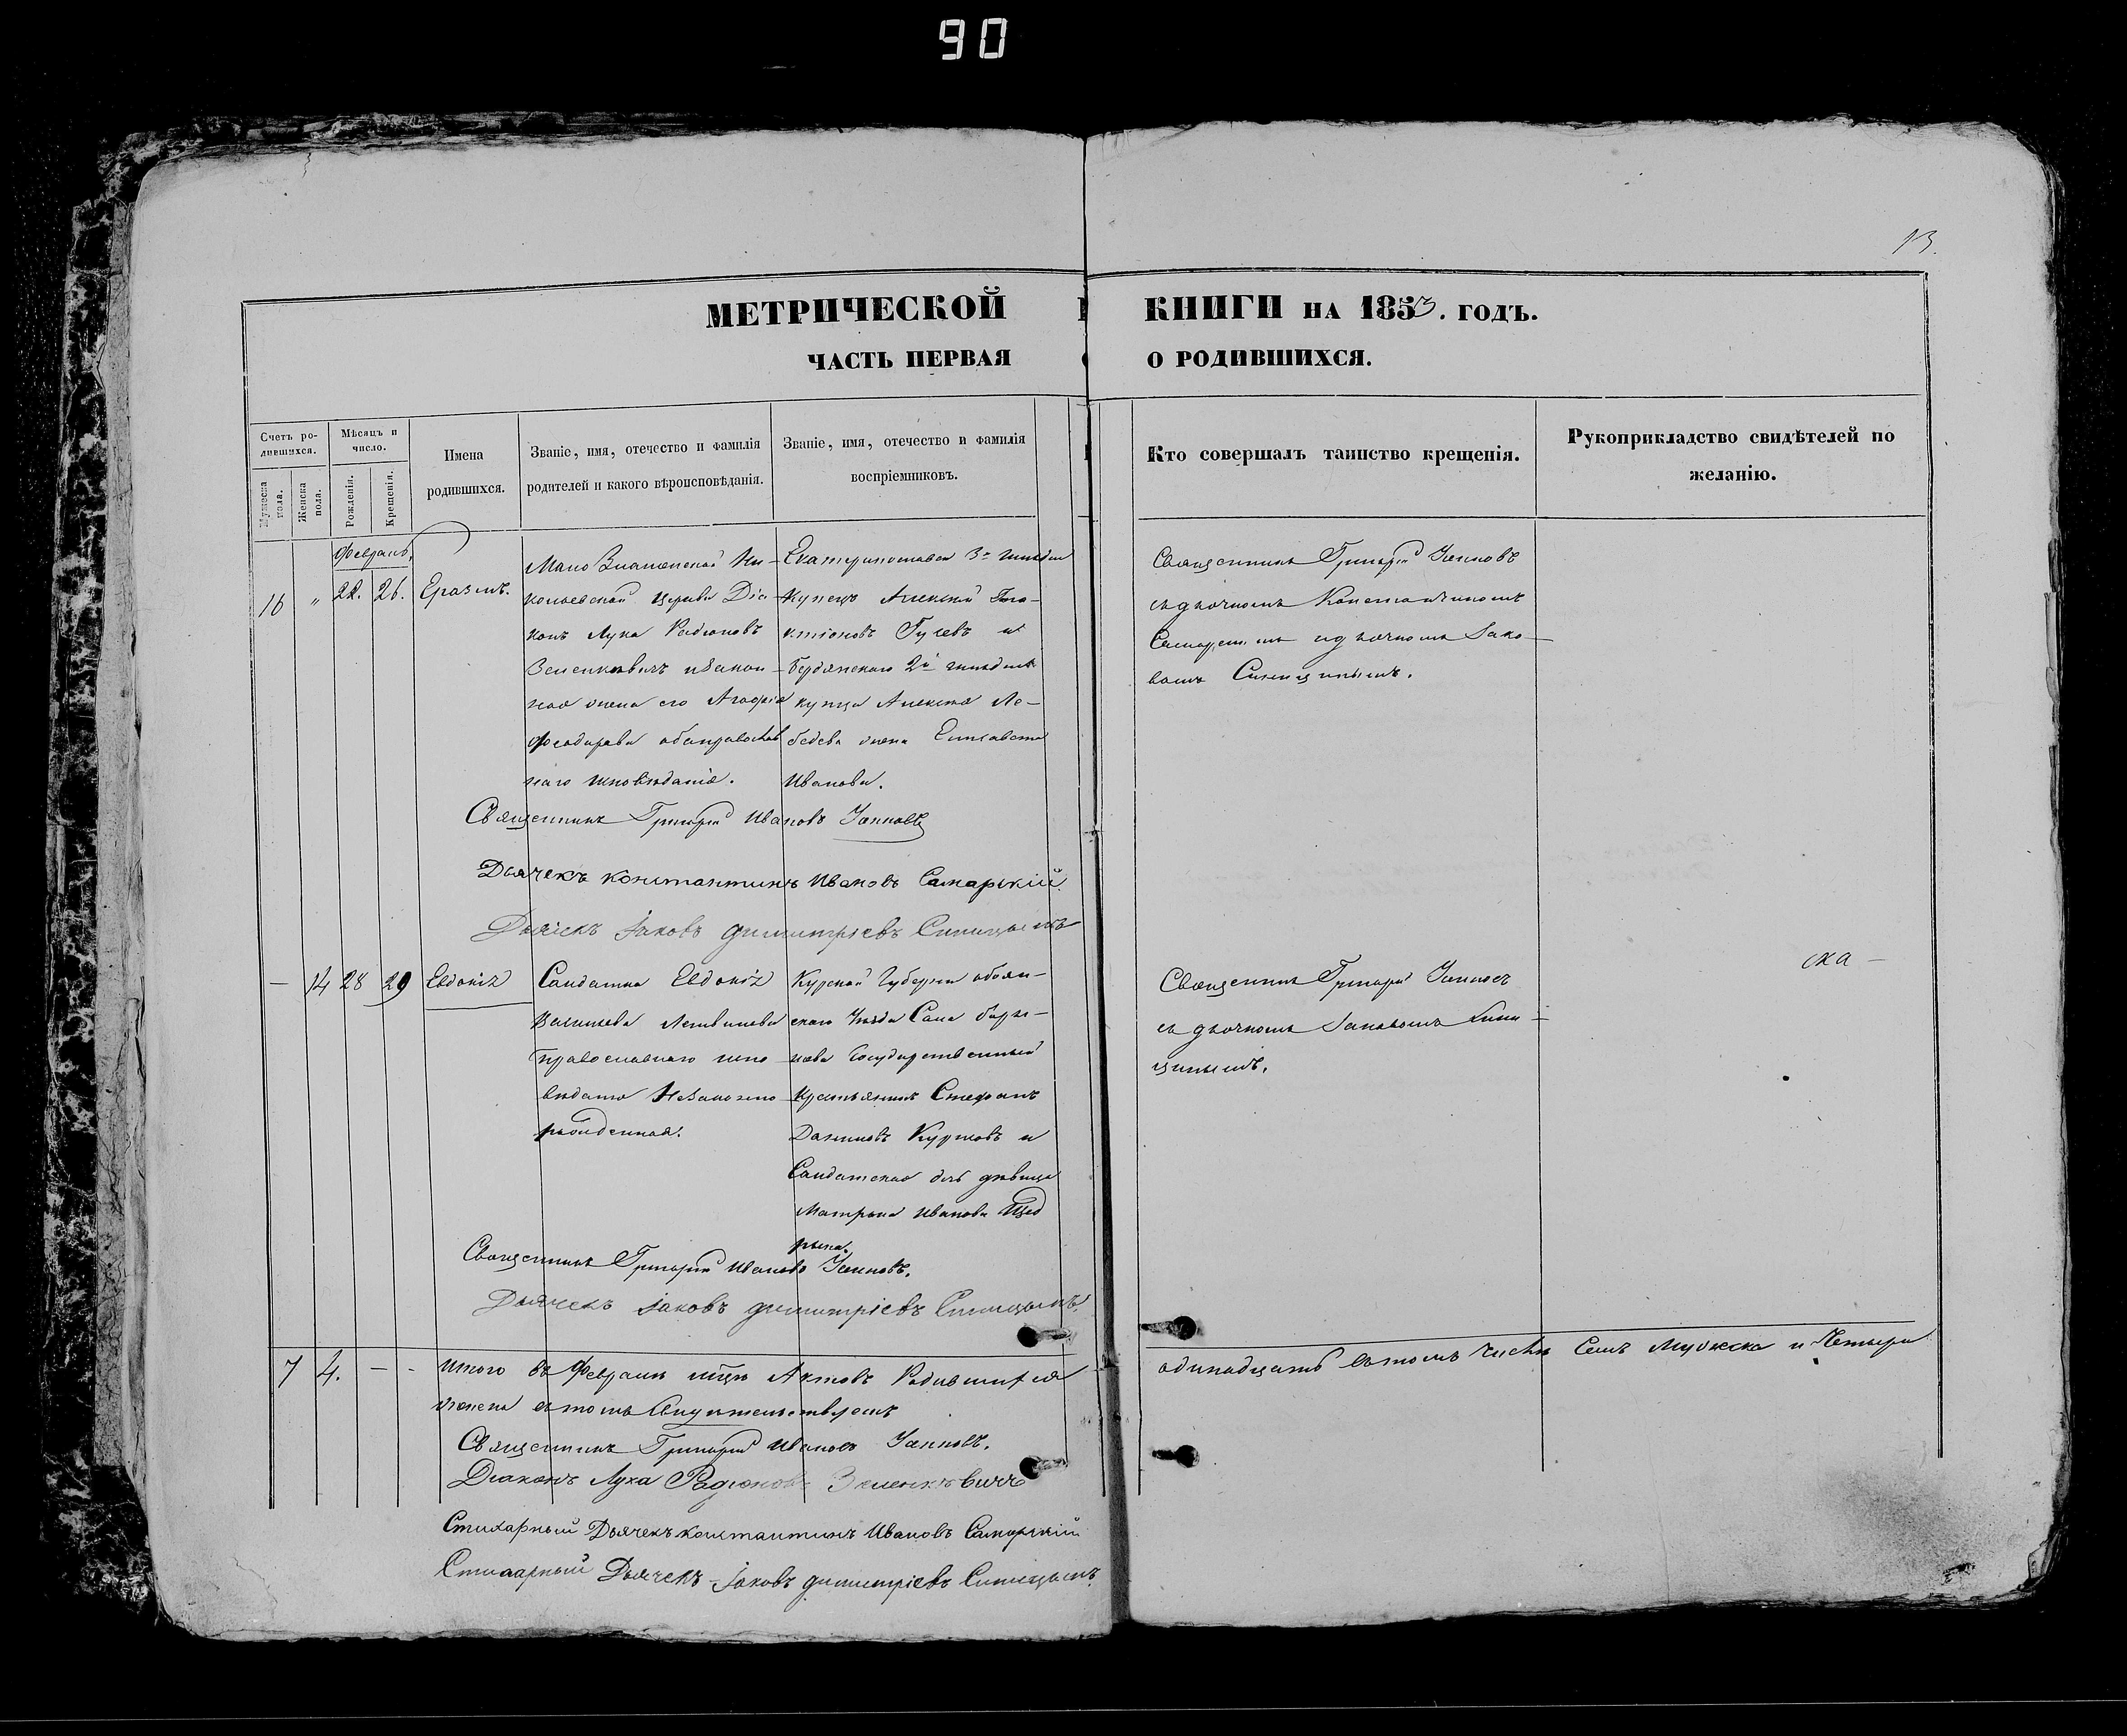 90
13.
МЕТРИЧЕСКОЙ КНИГИ НА 1853. ГОДЪ.
ЧАСТЬ ПЕРВАЯ О РОДИВШИХСЯ.
Счетъ родившихся.
Мужеска пола.
Женска пола.
Мѣсяцъ и число.
Рожденія.
Крещенія.
Имена родившихся.
Званіе, имя, отечество и фамилія
родителей и какого вѣроисповѣданія.
Званіе, имя, отечество и фамилія
воспріемниковъ.
Кто совершалъ таинство крещенія.
Рукоприкладство свидѣтелей по
желанію.
Февраль
16 " 22. 26. Еразмъ.
Мало Знаменской Ни-
колаевской Церкви Діа-
конъ Лука Радіоновъ
и закон-
ная жена его Агафія
Феодорова оба православ
наго исповѣданія.
Екатеринославск 3й гильдіи
Купецъ Алексѣй
Гусевъ и
Бердянскаго 2й гильдіи
купца Алексѣя Ле-
бедева жена Елисавета
Иванова.
Священникъ Григорій
съ дьячкомъ Константиномъ
Самарскимъ и дьячкомъ Іако-
вомъ Синицинымъ.
Священникъ Григорій Ивановъ
Дьячекъ Константинъ Ивановъ Самарскій
Дьячекъ Іаковъ Димитріевъ Синицынъ
— 14 28 29 Евдокія
Солдатка Евдокія
православнаго испо
вѣданія Незаконно
рожденная.
Курской Губерніи Обоян-
скаго Уѣзда Села
Государственный
Крестьянинъ Стефанъ
и
Солдатская дочь дѣвица
Матрона Иванова Щед
рина.
Священникъ Григорій
съ дьячкомъ Іаковомъ Сини-
цинымъ.
Священникъ Григорій Ивановъ
Дьячекъ Іаковъ Димитріевъ Синицынъ
ска —
7 4. — -
Итого въ Февралѣ мцѣ Актовъ Родившихся одинадцать въ томъ числѣ Семь Мужеска и Четыре
женска въ томъ Свидѣтельствуемъ
Священникъ Григорій Ивановъ
Діаконъ Лука Радіоновъ
Стихарный Дьячекъ Константинъ Ивановъ Самарскій
Стихарный Дьячекъ Іаковъ Димитріевъ Синицынъ